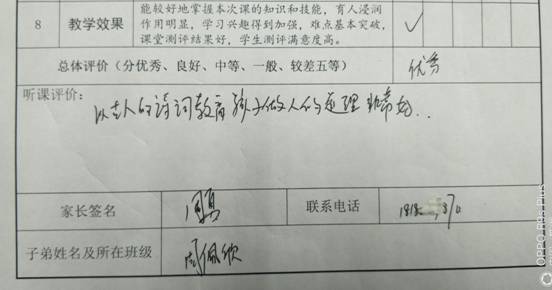 能较好地掌握本次课的知识和技能，育人浸润
8 教学效果 作用明显，学习兴趣得到加强，难点基本突破，
课堂测评结果好，学生测评满意度高。 ✓
总体评价（分优秀、良好、中等、一般、较差五等） 优秀
听课评价：
以古人的诗词教育孩子做人的道理 非常好..
家长签名 周勇 联系电话
子弟姓名及所在班级 周佩欣
OPPO R9s Plus